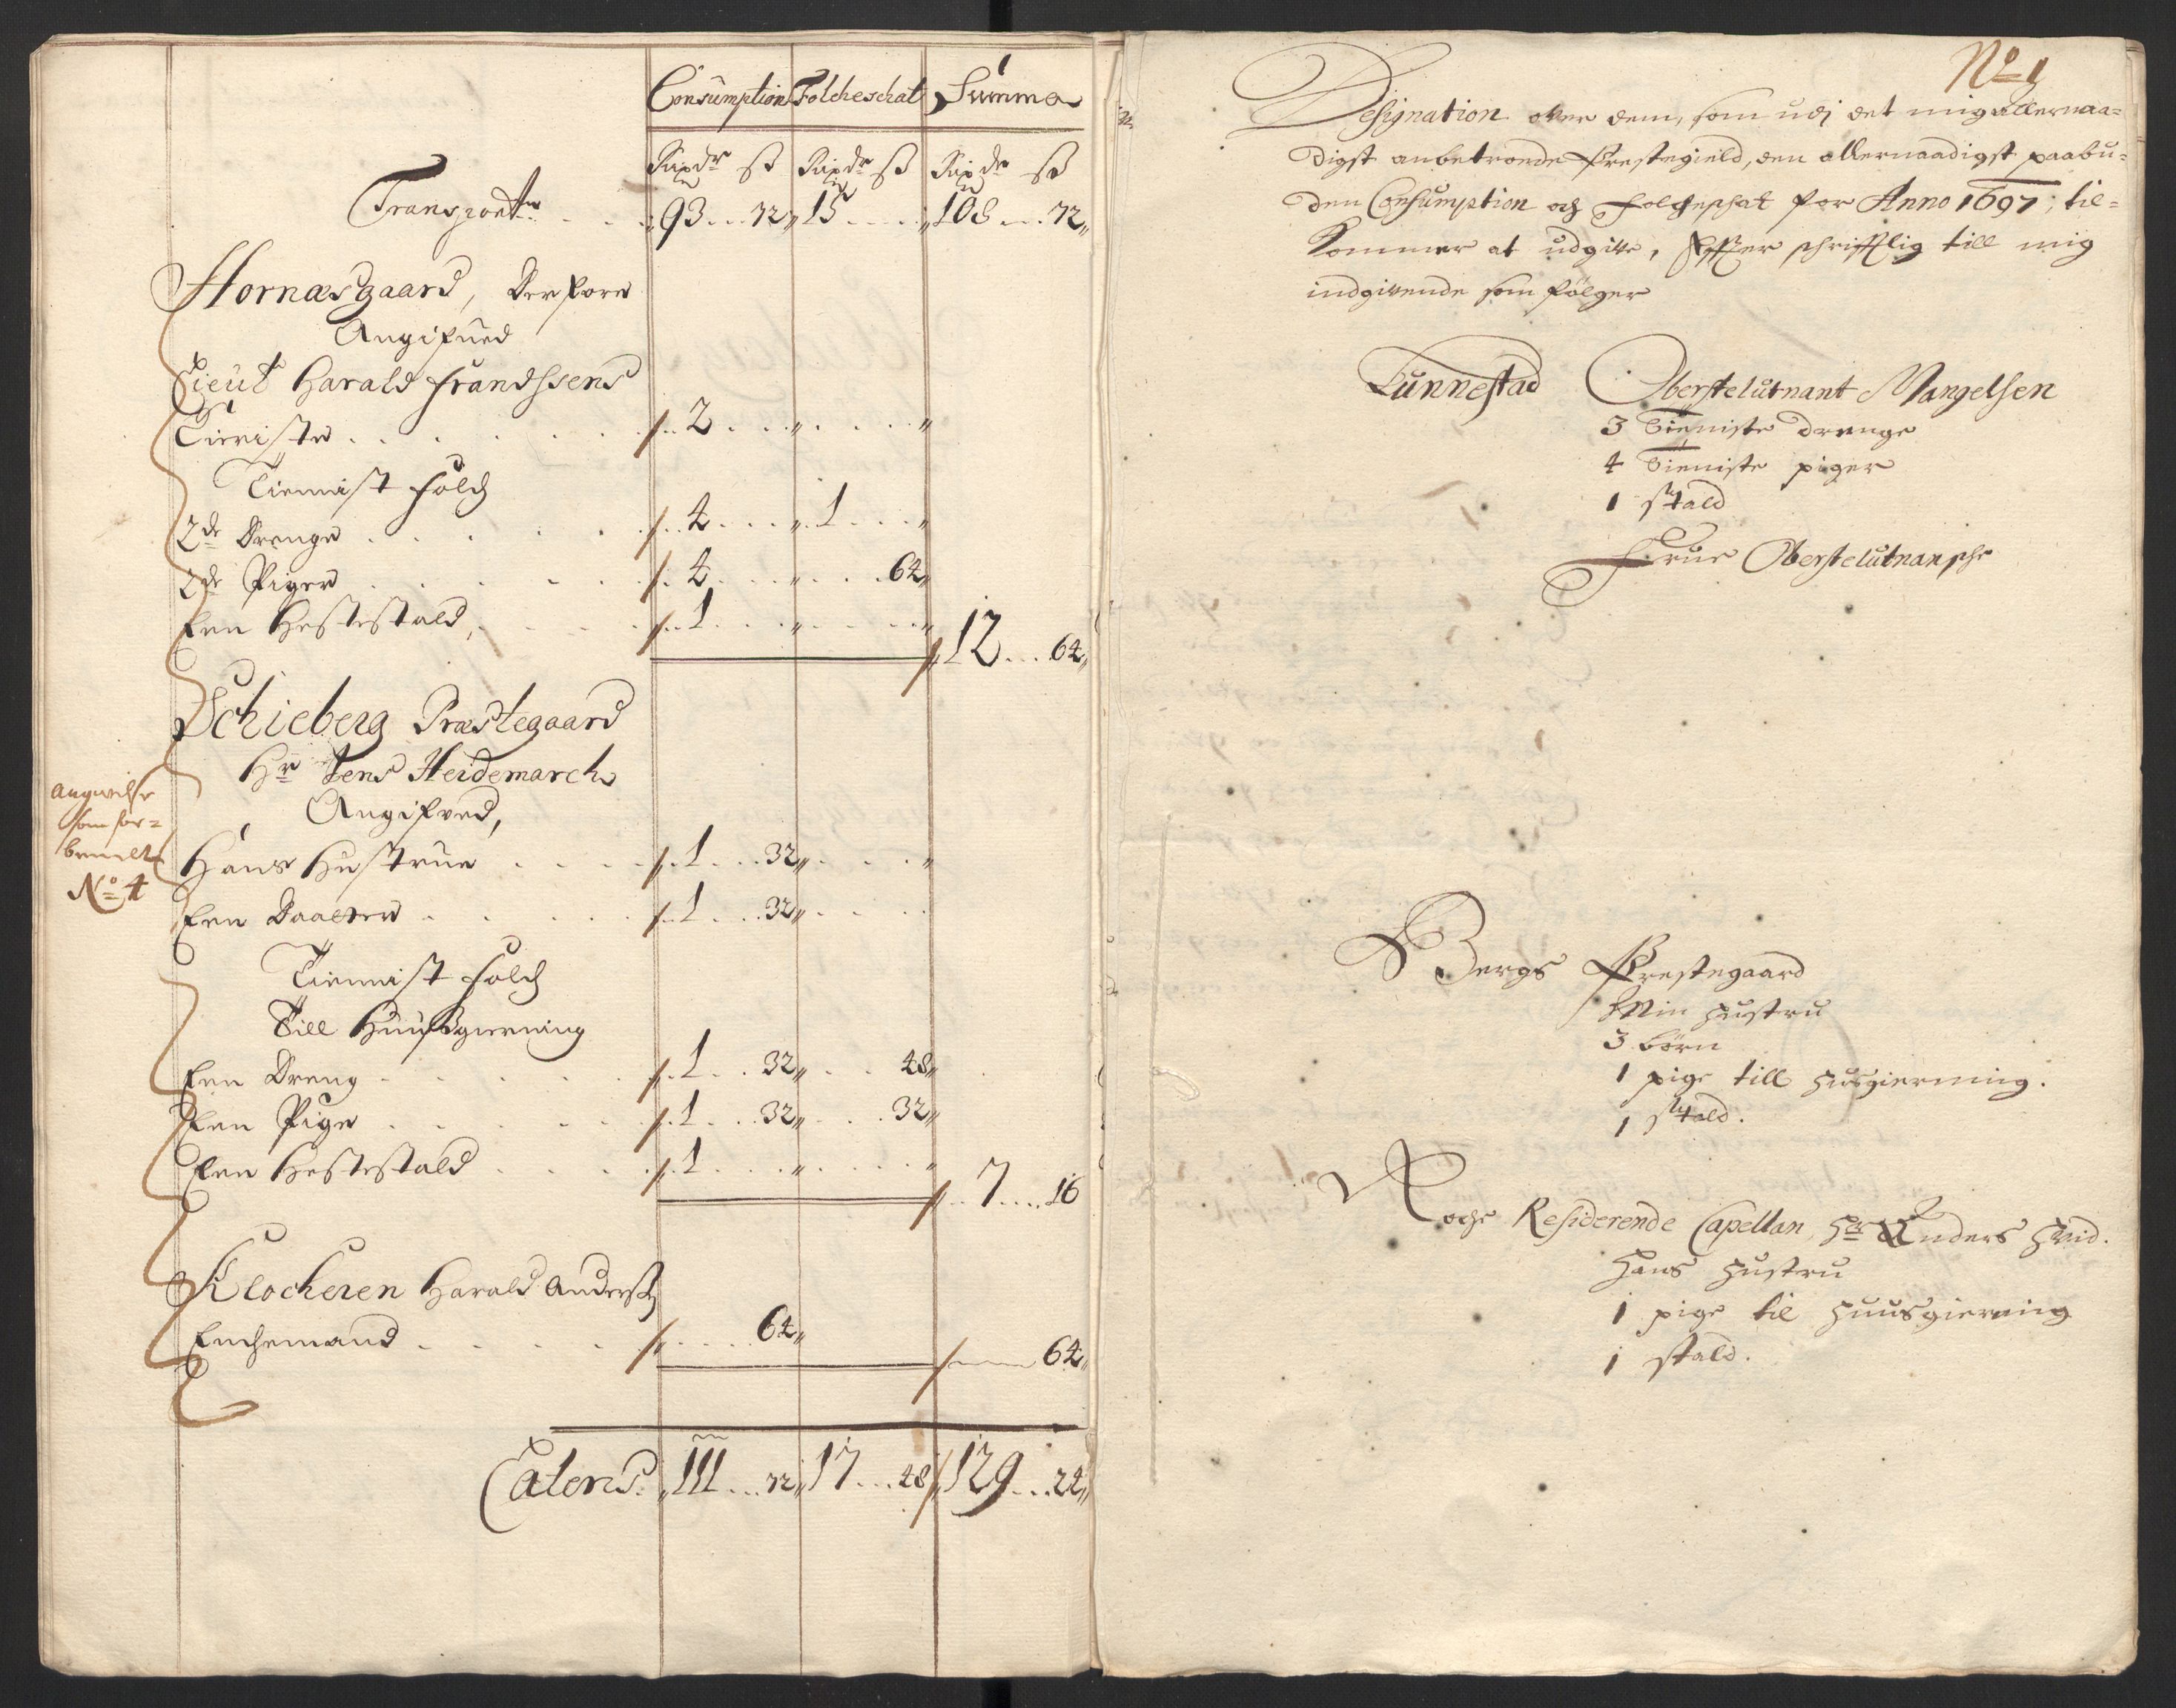 Consumption Folcheschat Summa
Rixdr ß Rixdr ß Rixdr ß
Transportr . . . 93 . . 72 15 . . . 108 . . 72
Hornæsgaard, derfore
Angifued
Lieut Harald Frandssens
. . . 2 . . .
Tiennist folch
2de Drenge . . . 4 . . . 1 . . .
2de Piger . . . 4 . . . 64
Een Hestestald . . . 1 . . .
12 . . 64
Schieberg Præstegaard
Hr Jens Heidemarch
Angifved,
Hans Hustrue . . . 1 . . 32
Een Daatter . . . 1 . . 32
Tiennist folch
Till Huusgierning
Een Dreng . . . 1 . . 32 . . 48
Een Pige . . . 1 . . 32 . . 32
Een Hestestald . . . 1 . . .
7 . . 16
Klocheren Harald Anderss
Enchemand . . . 64
64
Lateris 111 . . 72 17 . . 48 129 . . 24
som for=
No 4
No 1
Designation over dem, som udj det mig allernaa=
digst anbetroede Prestegield, den allernaadigst paabu=
den Consumption och folcheschat for Anno 1697, til=
kommer at udgive, effter schrifftlig till mig
indgivende som følger
Lunnestad Oberstelutnant Mangelsen
3 Tieniste drenge
4 Tieniste piger
1 stald
Frue Oberstelutnansche
Bergs Prestegaard
Min hustru
3 børn
1 pige till husgierning.
1 stald.
Residerende Capellan, Hr Anders Hvid.
Hans Hustru
1 pige til huusgierning
1 stald.